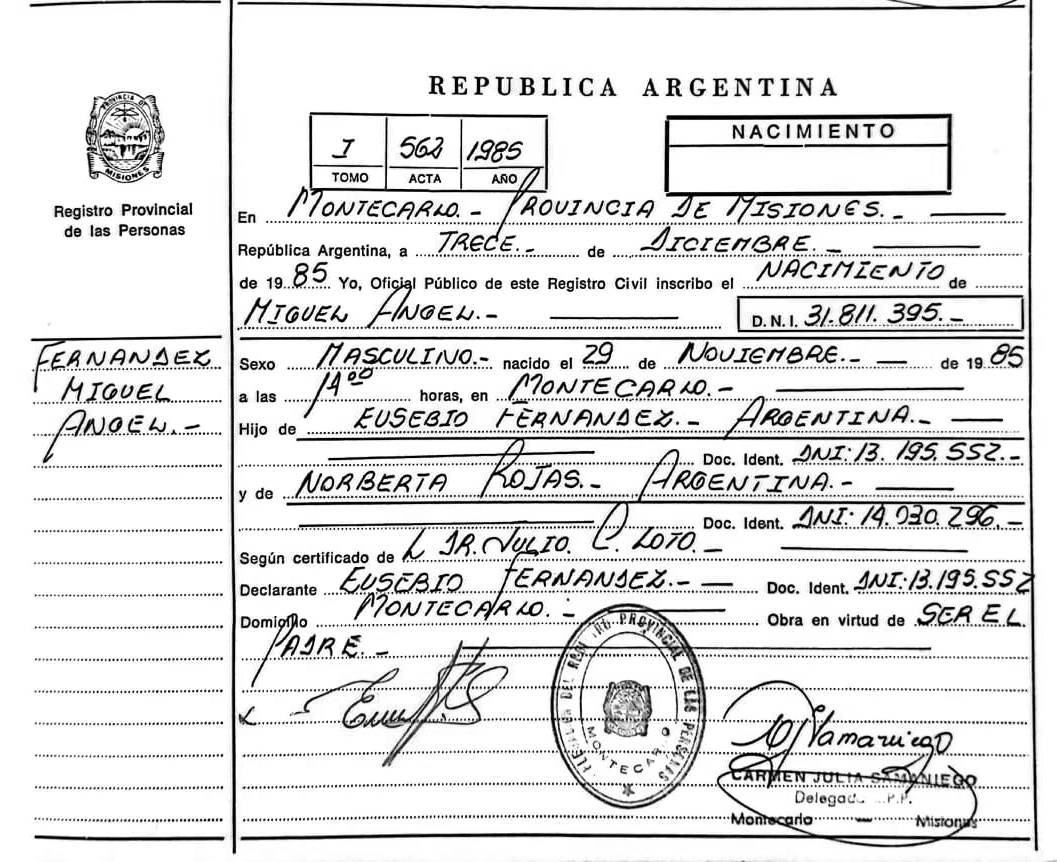 REPUBLICA ARGENTINA
PROVINCIA DE
MISIONES
Registro Provincial
de las Personas
I 562 1985
TOMO ACTA AÑO
NACIMIENTO
En MONTECARLO.- PROVINCIA DE MISIONES.-
República Argentina, a TRECE.- de DICIEMBRE.-
de 1985 Yo, Oficial Público de este Registro Civil inscribo el NACIMIENTO de
MIGUEL ANGEL.- D.N.I. 31.811.395.-
FERNANDEZ
MIGUEL
ANGEL.-
Sexo MASCULINO.- nacido el 29 de NOVIEMBRE.- de 1985
a las 14⁰⁰ horas, en MONTECARLO.-
Hijo de EUSEBIO FERNANDEZ.- ARGENTINA.-
Doc. Ident. DNI: 13.195.552.-
y de NORBERTA ROJAS.- ARGENTINA.-
Doc. Ident. DNI: 14.030.296.-
Según certificado de L DR. JULIO. C. LOTO.-
Declarante EUSEBIO FERNANDEZ.- Doc. Ident. DNI: 13.195.552
Domicilio MONTECARLO.- Obra en virtud de SER EL
PADRE.-
PROVINCIAL DE LAS PERSONAS
MONTECARLO
CARMEN JULIA SAMANIEGO
Montecarlo - Misiones